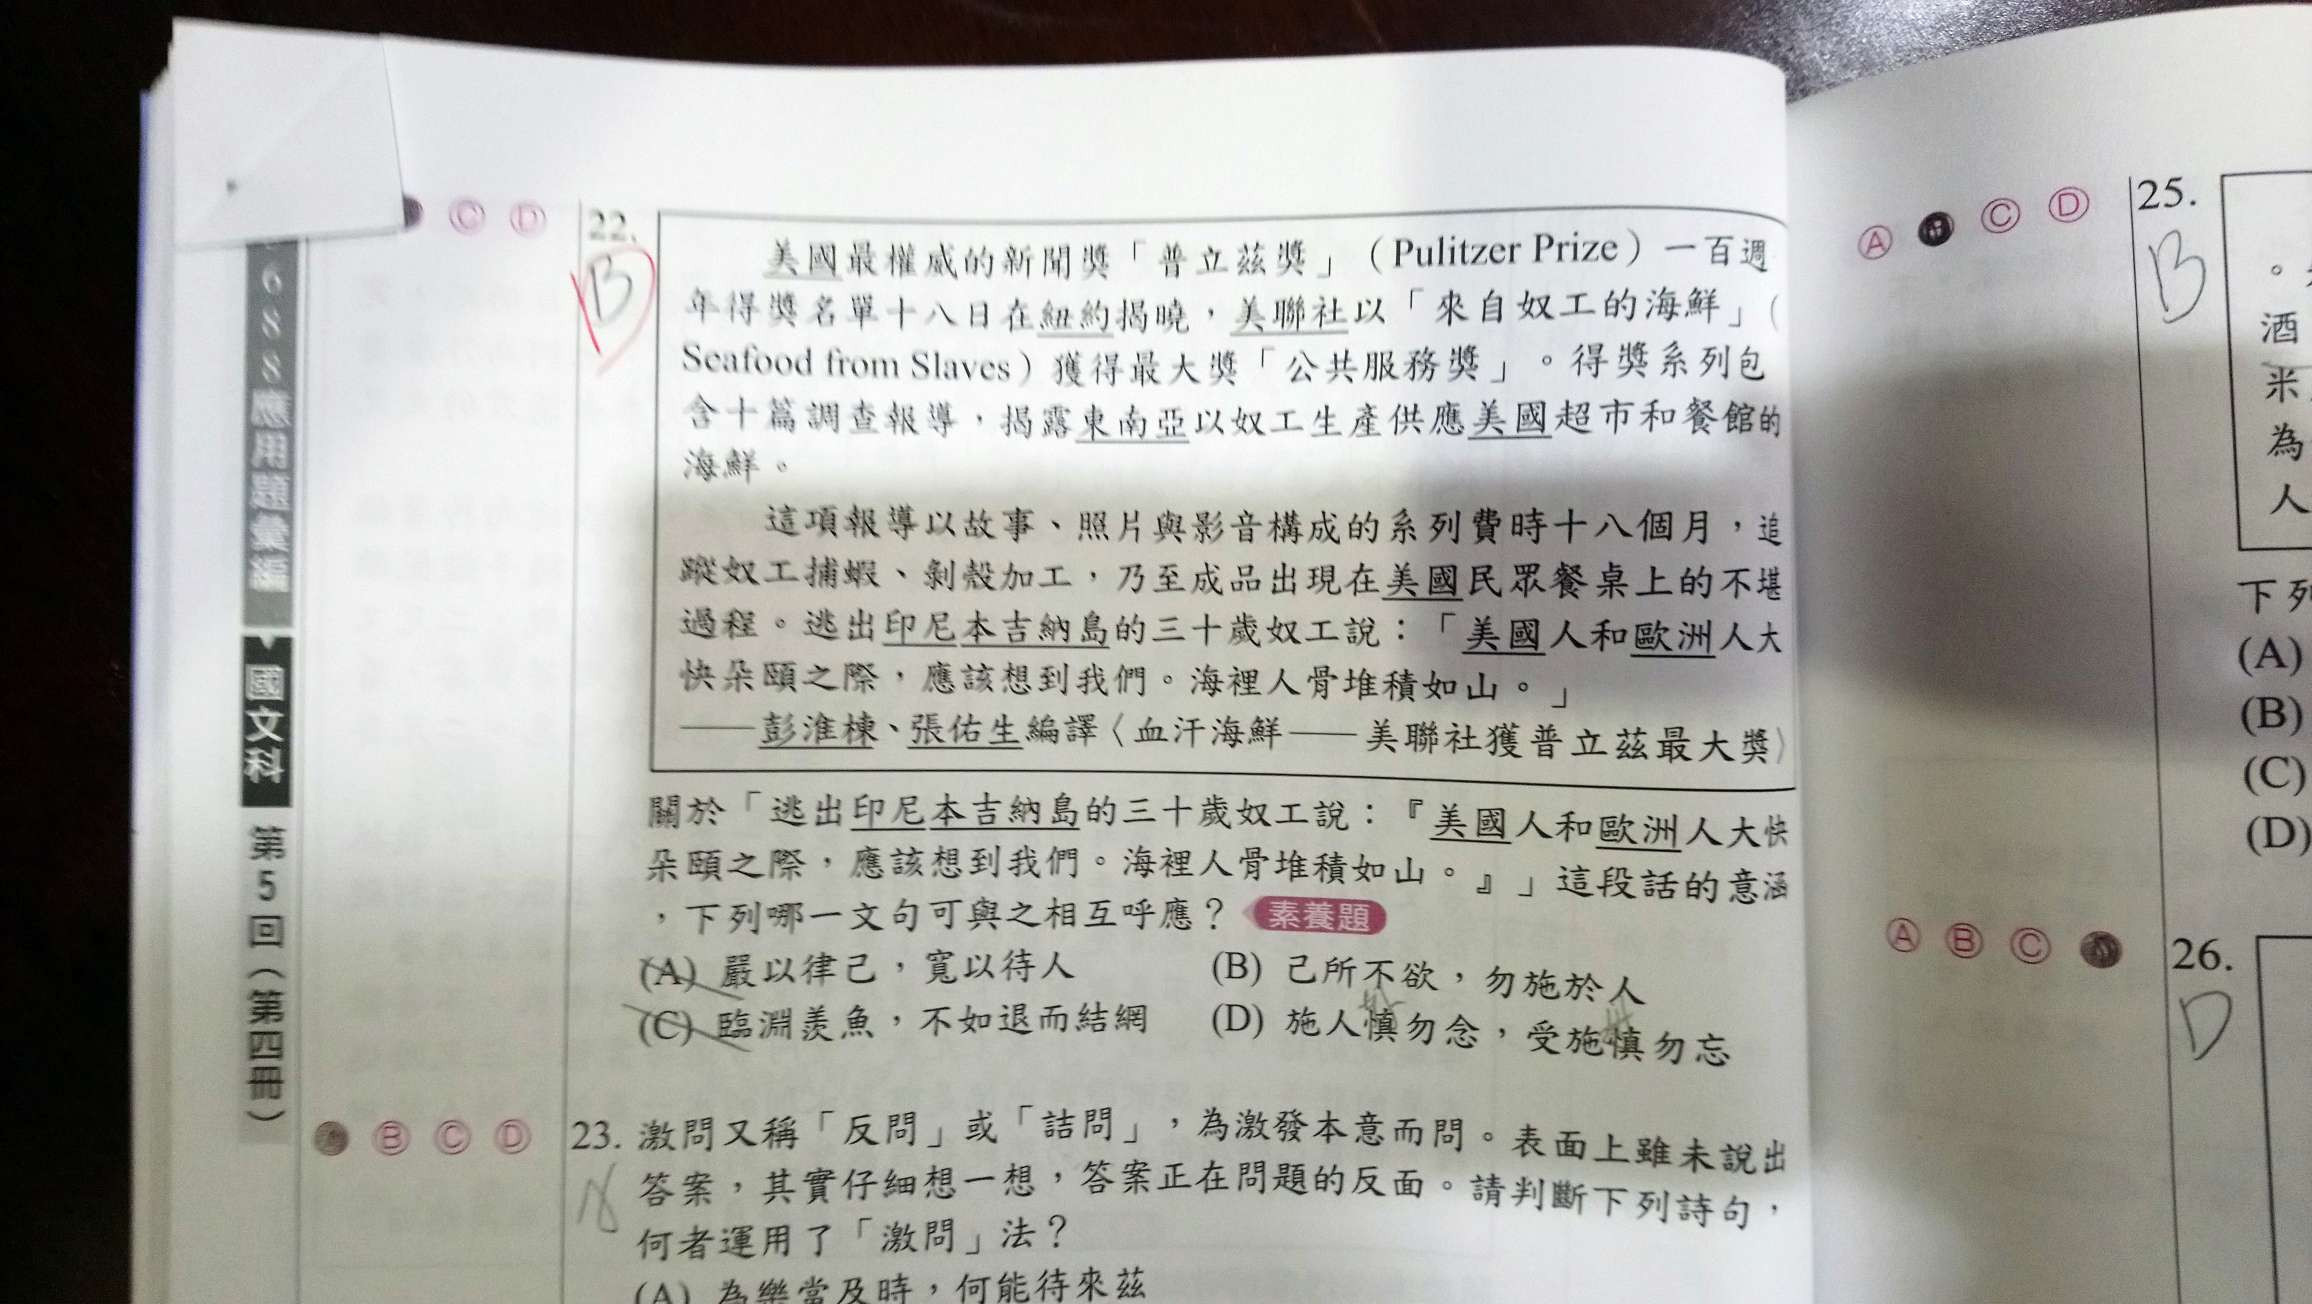 6 8 8 應用題彙編 國文科 第 5 回 (第四冊)
Ⓒ Ⓓ
22.
B
美國最權威的新聞獎「普立茲獎」(Pulitzer Prize)一百週
年得獎名單十八日在紐約揭曉，美聯社以「來自奴工的海鮮」(
Seafood from Slaves)獲得最大獎「公共服務獎」。得獎系列包
含十篇調查報導，揭露東南亞以奴工生產供應美國超市和餐館的
海鮮。
這項報導以故事、照片與影音構成的系列費時十八個月，追
蹤奴工捕蝦、剝殼加工，乃至成品出現在美國民眾餐桌上的不堪
過程。逃出印尼本吉納島的三十歲奴工說：「美國人和歐洲人大
快朵頤之際，應該想到我們。海裡人骨堆積如山。」
——彭淮棟、張佑生編譯〈血汗海鮮——美聯社獲普立茲最大獎〉
關於「逃出印尼本吉納島的三十歲奴工說：『美國人和歐洲人大快
朵頤之際，應該想到我們。海裡人骨堆積如山。』」這段話的意涵
，下列哪一文句可與之相互呼應？ 素養題
(A) 嚴以律己，寬以待人 (B) 己所不欲，勿施於人
(C) 臨淵羨魚，不如退而結網 (D) 施人慎勿念，受施慎勿忘
Ⓑ Ⓒ Ⓓ
23. 激問又稱「反問」或「詰問」，為激發本意而問。表面上雖未說出
答案，其實仔細想一想，答案正在問題的反面。請判斷下列詩句，
何者運用了「激問」法？
(A) 為樂當及時，何能待來茲
Ⓐ Ⓒ Ⓓ
25.
B
。
酒
米
為
人
下列
(A)
(B)
(C)
(D)
Ⓐ Ⓑ Ⓒ
26.
D